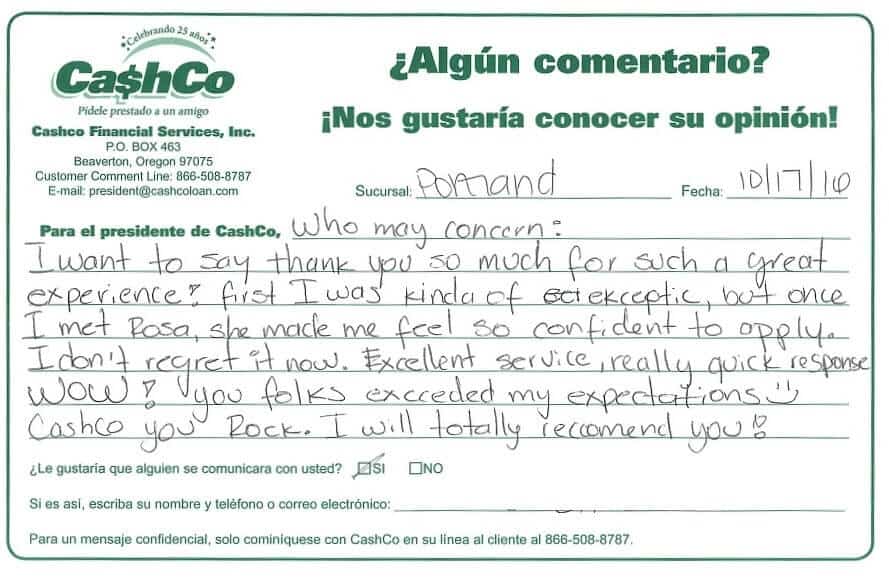 Celebrando 25 años
Ca$hCo
Pídele prestado a un amigo
Cashco Financial Services, Inc.
P.O. BOX 463
Beaverton, Oregon 97075
Customer Comment Line: 866-508-8787
E-mail: president@cashcoloan.com
¿Algún comentario?
¡Nos gustaría conocer su opinión!
Sucursal: Portland Fecha: 10/17/16
Para el presidente de CashCo, Who may concern:
I want to say thank you so much for such a great
experience! first I was kinda of ekceptic, but once
I met Rosa, she made me feel so confident to apply.
I don't regret it now. Excellent service, really quick response
WOW! you folks excceded my expectations
Cashco you Rock. I will totally reccomend you!
¿Le gustaría que alguien se comunicara con usted? SI NO
Si es así, escriba su nombre y teléfono o correo electrónico:
Para un mensaje confidencial, solo cominíquese con CashCo en su línea al cliente al 866-508-8787.